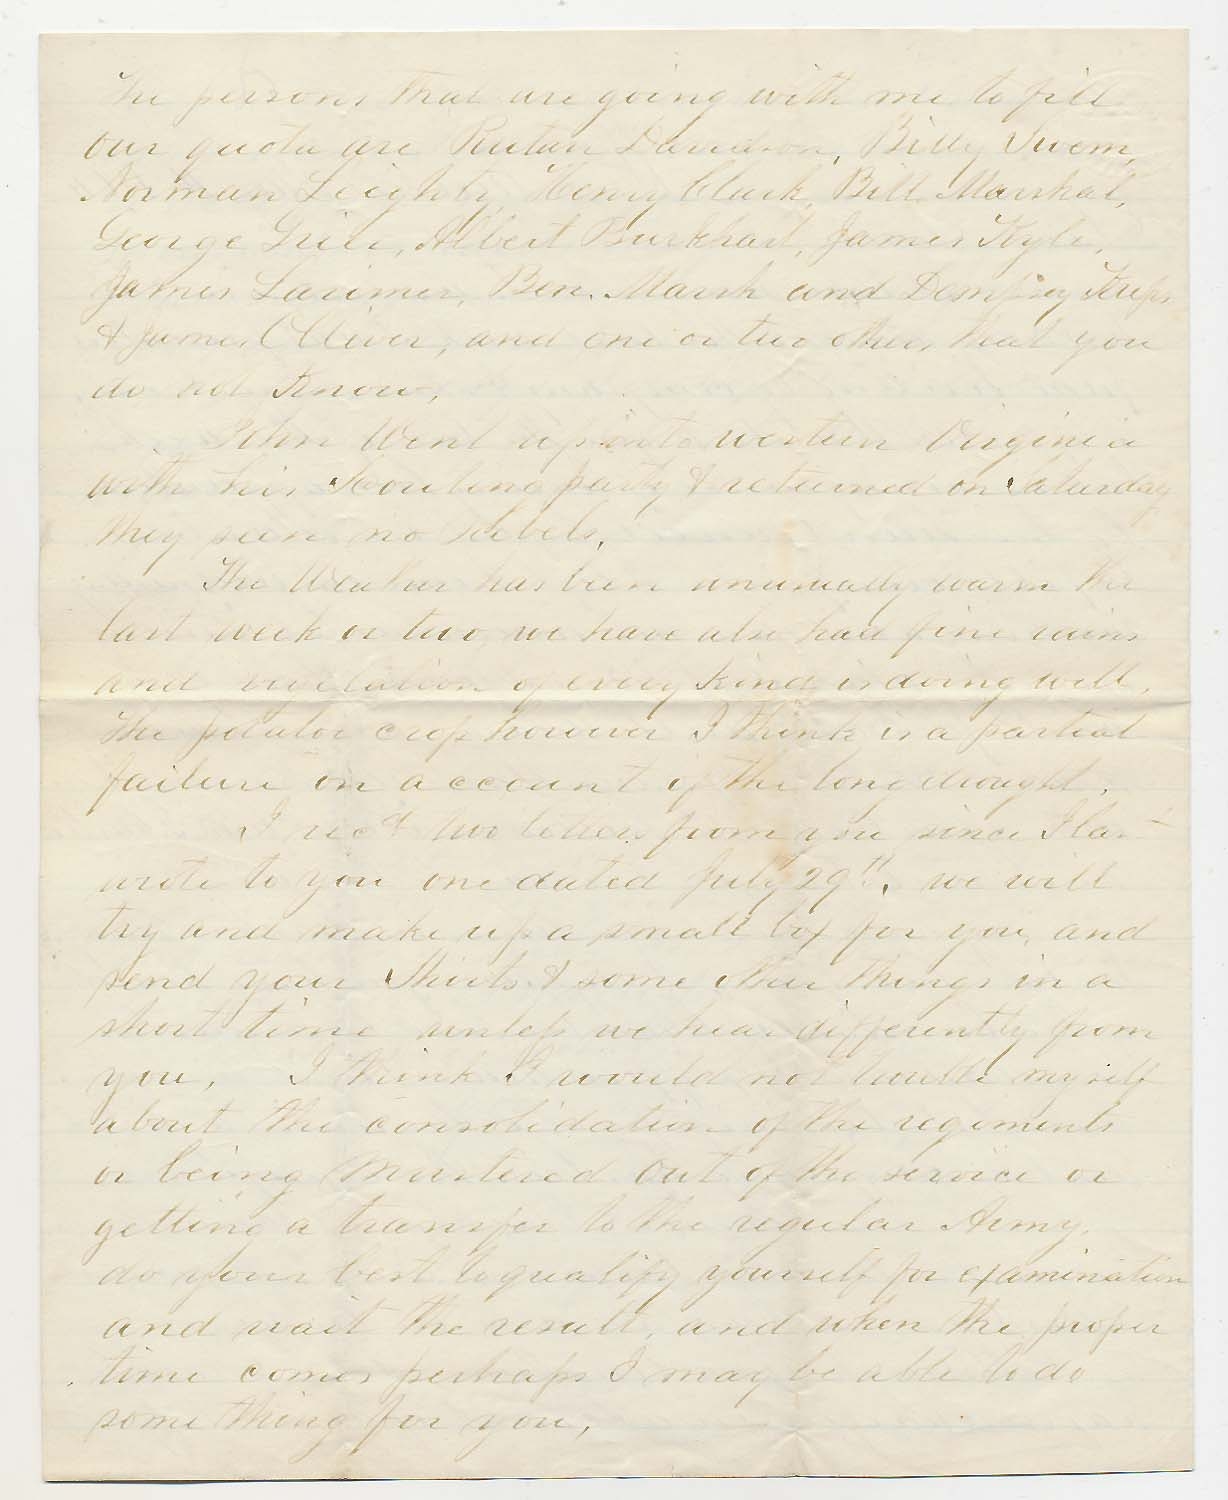 The persons that are going with me to fill
our quota are Rutan Davidson, Billy Swem,
Norman Leighty, Henry Clark, Bill Marshal,
George Grier, Albert Burkhart, James Kyle,
James Larimer, Ben. Marsh and Dempsey Kreps
& James Oliver, and one or two others that you
do not know,
John Went up into western Virginia
with his Scouting party & returned on Saturday
they seen no rebels,
The Weather has been unusually warm the
last week or two, we have also had fine rains
and vegetation of every kind is doing well,
the potatoe crop however I think is a partial
failure on account of the long drought,
I recd two letters from you since I last
wrote to you one dated July 29th, we will
try and make up a small box for you, and
send your Shirts & some other things in a
short time unless we hear differently from
you, I think I would not trouble myself
about the consolidation of the regements
or being Mustered out of the service or
getting a transfer to the regular Army,
do your best to qualify yourself for examination
and wait the result, and when the proper
time comes perhaps I may be able to do
some thing for you,